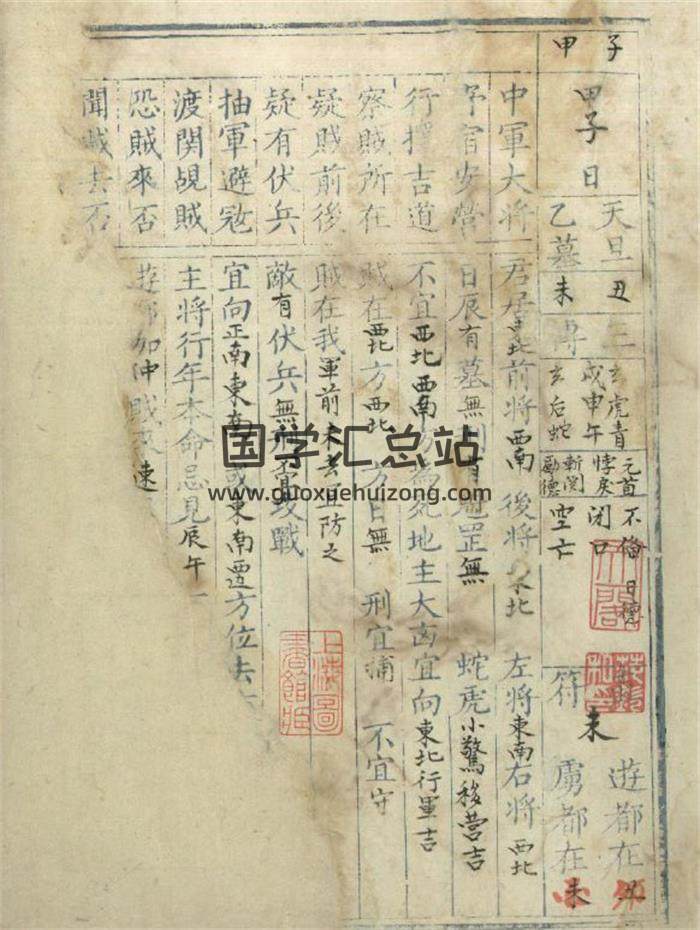 甲子
甲子日
天旦 丑 三
乙墓 未 傳
玄虎青
戌申午
玄后蛇
元首 不俻
悖戾 閉口
斬関 空亡
勵德
日德
符
未
遊都在丑
虜都在未
中軍大将 君居 前将西南 後将東北 左将東南 右将西北
下宿安營 日辰有墓無 罡無 蛇虎小驚移营吉
行擇吉道 不宜西北西南 死地主大凶宜向東北行軍吉
察賊所在 賊在西北方西北 方日無 刑宜捕 不宜守
疑賊前後 賊在我軍前未去宜防之
疑有伏兵 敵有伏兵無 攻戰
抽軍避冦 宜向正南東南或東南遷方位去
渡関覘賊 主将行年本命忌見辰午
恐賊來否 遊都加仲賊 速
聞賊去否
上海圖書館藏
国学汇总站
www.guoxuehuizong.com